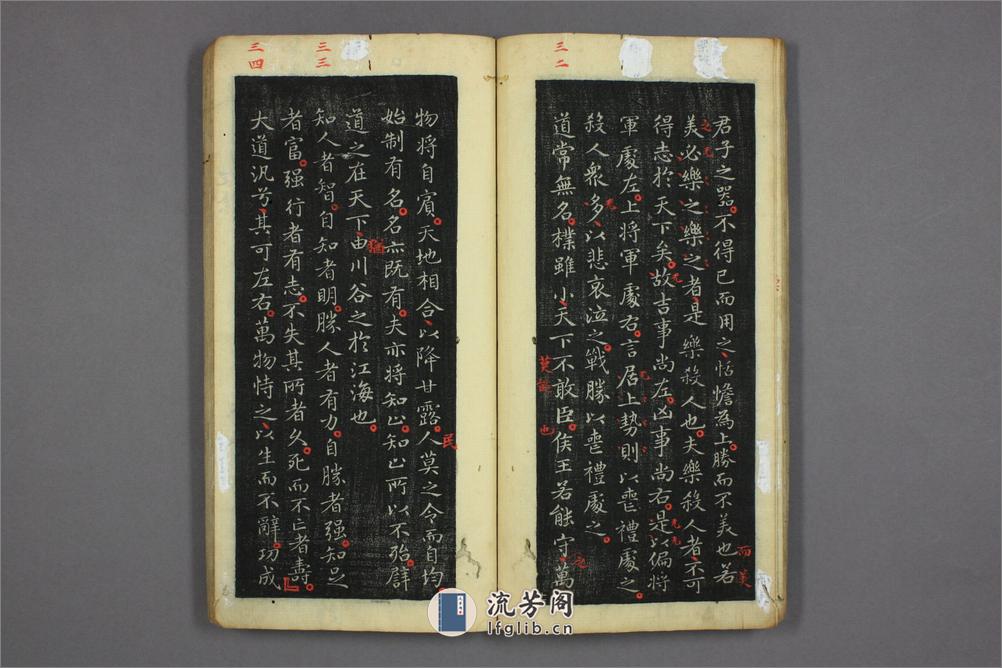 三二
君子之器不得已而用之恬憺為上勝而不美也若
美必樂之樂之者是樂殺人也夫樂殺人者不可
得志於天下矣故吉事尚左凶事尚右是以偏將
軍處左上將軍處右言居上勢則以喪禮處之
殺人衆多以悲哀泣之戰勝以喪禮處之
道常無名樸雖小天下不敢臣侯王若能守萬
三三
三四
物將自賓天地相合以降甘露人莫之令而自均
始制有名名亦既有夫亦將知止知止所以不殆譬
道之在天下由川谷之於江海也
知人者智自知者明勝人者有力自勝者强知足
者富强行者有志不失其所者久死而不亡者壽
大道汎兮其可左右萬物恃之以生而不辭功成
民
猶
而美
之
也
流芳阁
lfglib.cn